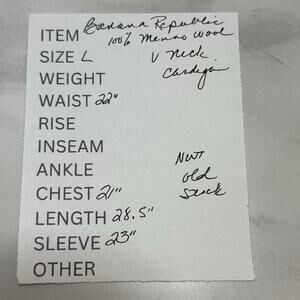 ITEM Banana Republic
100% Merino Wool
SIZE L V Neck
Cardigan
WEIGHT
WAIST 22"
RISE
INSEAM
ANKLE NWT
old
CHEST 21" Stock
LENGTH 28.5"
SLEEVE 23"
OTHER